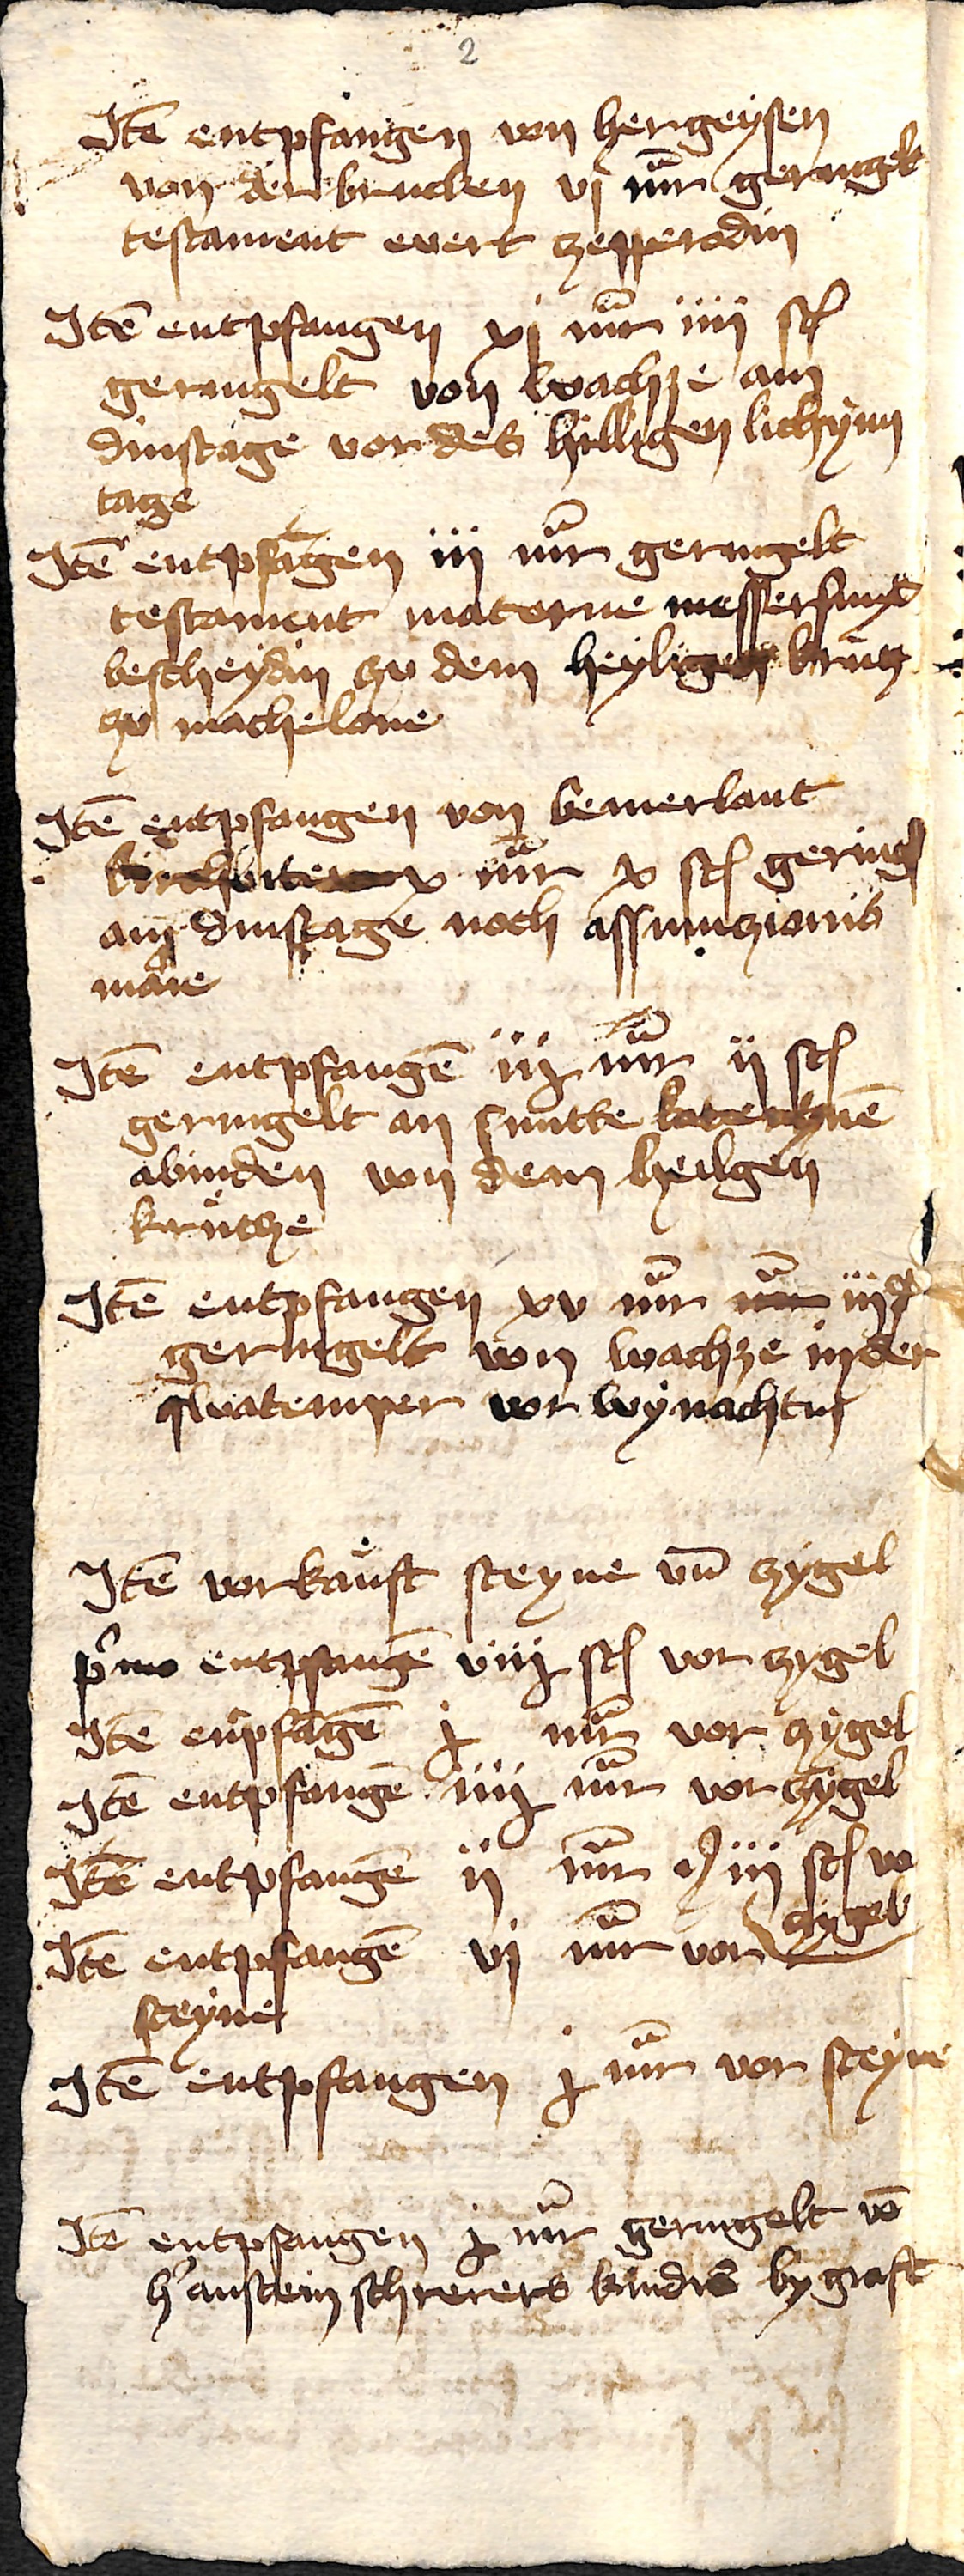 2
Itē entpfangen von hergeysen
von der brucken vj mr̄ gerngelt
testament evert zepperodin
Itē entpfangen xj mr̄ iiii sch
gerngelt von wachze am
dinstage vor des hilligen lichym
tage
Itē entpfāgen iii mr̄ gerngelt
testament materne messersmyd
bescheydin zu dem heyligen krutz
zu machelone
Itē entpfangen von bemerlant
x mr̄ x sch gering
am dinstage noch assumczionis
marie
Itē entpfangē iij mr̄ ii sch
gerngelt an sente katerynē
abinden von dem heilgen
krutze
Itē entpfangen xv mr̄ mr̄ iii
gerngelt von wachze in der
quatemper vor wynachtn
Itē vorkauft steyne vn̄ zygel
p'mo entpfangē viij sch vor zygel
Itē enpfāgē j mr̄ vor zygel
Itē entpfangē iiij mr̄ vor zygel
Itē entpfangē ii mr̄ iii sch vo
zygel
Itē entpfangē vj mr̄ vor
steyne
Itē entpfangen j mr̄ vor steyne
Itē entpfangen j mr̄ gerngelt vō
h' anstein schrerers kindis bygraft